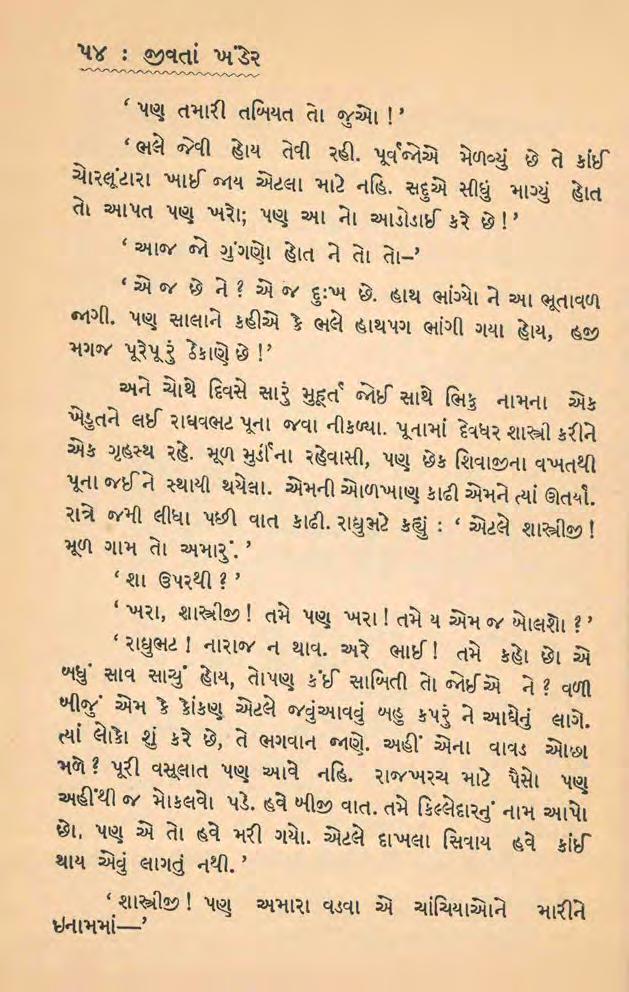 ૫૪ : જીવતાં ખંડેર
‘ પણ તમારી તબિયત તો જુઓ !’
‘ ભલે જેવી હોય તેવી રહી. પૂર્વજોએ મેળવ્યું છે તે કાંઈ
ચોરલૂંટારા ખાઈ જાય એટલા માટે નહિ. સદુએ સીધું માગ્યું હોત
તો આપત પણ ખરો; પણ આ નો આડોડાઈ કરે છે !’
‘ આજ જો ગુંગણો હોત ને તો તો–’
‘ એ જ છે ને ? એ જ દુઃખ છે. હાથ ભાંગ્યો ને આ ભૂતાવળ
જાગી. પણ સાલાને કહીએ કે ભલે હાથપગ ભાંગી ગયા હોય, હજી
મગજ પૂરેપૂરું ઠેકાણે છે !’
અને ચોથે દિવસે સારું મુહૂર્ત જોઈ સાથે ભિકુ નામના એક
ખેડુતને લઈ રાઘવભટ પૂના જવા નીકળ્યા. પૂનામાં દેવધર શાસ્ત્રી કરીને
એક ગૃહસ્થ રહે. મૂળ મુર્ડીના રહેવાસી, પણ છેક શિવાજીના વખતથી
પૂના જઈને સ્થાયી થયેલા. એમની ઓળખાણ કાઢી એમને ત્યાં ઊતર્યા.
રાત્રે જમી લીધા પછી વાત કાઢી. રાઘુભટે કહ્યું : ‘ એટલે શાસ્ત્રીજી !
મૂળ ગામ તો અમારું. ’
‘ શા ઉપરથી ? ’
‘ ખરા, શાસ્ત્રીજી ! તમે પણ ખરા ! તમે ય એમ જ બોલશો ? ’
‘ રાઘુભટ ! નારાજ ન થાવ. અરે ભાઈ ! તમે કહો છો એ
બધું સાવ સાચું હોય, તોપણ કંઈ સાબિતી તો જોઈએ ને ? વળી
બીજું એમ કે કોંકણ એટલે જવુંઆવવું બહુ કપરું ને આઘેનું લાગે.
ત્યાં લોકો શું કરે છે, તે ભગવાન જાણે. અહીં એના વાવડ ઓછા
મળે ? પૂરી વસૂલાત પણ આવે નહિ. રાજખરચ માટે પૈસો પણ
અહીંથી જ મોકલવો પડે. હવે બીજી વાત. તમે કિલ્લેદારનું નામ આપો
છો, પણ એ તો હવે મરી ગયો. એટલે દાખલા સિવાય હવે કાંઈ
થાય એવું લાગતું નથી. ’
‘ શાસ્ત્રીજી ! પણ અમારા વડવા એ ચાંચિયાઓને મારીને
ઇનામમાં—’